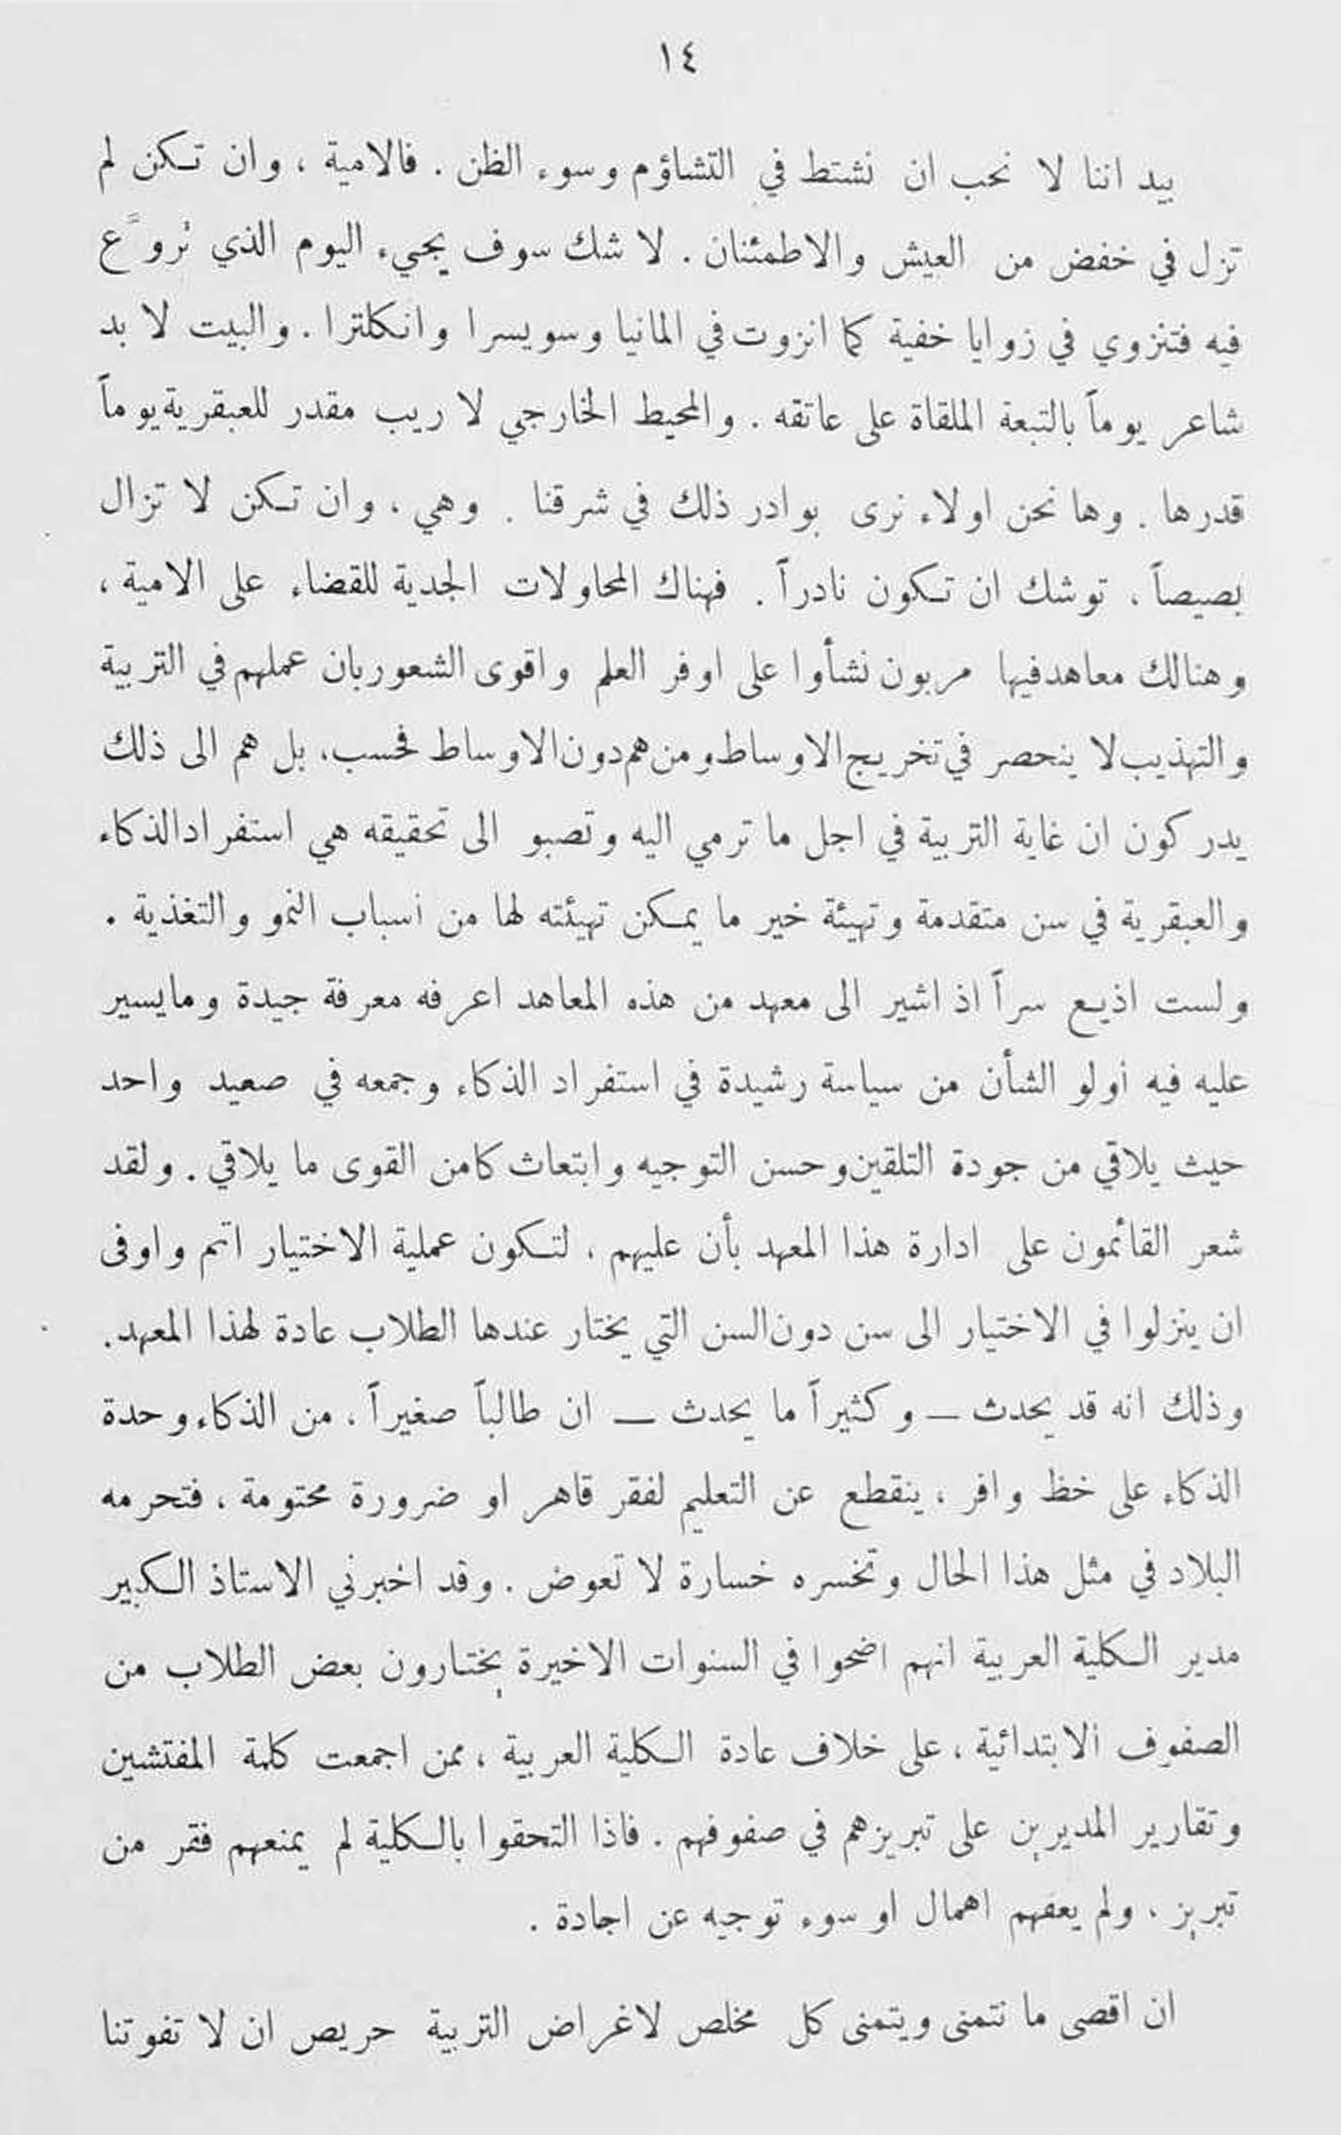 ١٤
بيد اننا لا نحب ان نشتط في التشاؤم وسوء الظن . فالامية ، وان تكن لم
تزل في خفض من العيش والاطمئنان . لا شك سوف يجيء اليوم الذي تُروَّع
فيه فتنزوي في زوايا خفية كما انزوت في المانيا وسويسرا وانكلترا . والبيت لا بد
شاعر يوماً بالتبعة الملقاة على عاتقه . والمحيط الخارجي لا ريب مقدر للعبقرية يوماً
قدرها . وها نحن اولاء نرى بوادر ذلك في شرقنا . وهي ، وان تكن لا تزال
بصيصاً ، توشك ان تكون نادراً . فهناك المحاولات الجدية للقضاء على الامية ،
وهنالك معاهد فيها مربون نشأوا على اوفر العلم واقوى الشعور بان عملهم في التربية
والتهذيب لا ينحصر في تخريج الاوساط ومن هم دون الاوساط فحسب، بل هم الى ذلك
يدركون ان غاية التربية في اجل ما ترمي اليه وتصبو الى تحقيقه هي استفراد الذكاء
والعبقرية في سن متقدمة وتهيئة خير ما يمكن تهيئته لها من أسباب النمو والتغذية .
ولست اذيع سراً اذ اشير الى معهد من هذه المعاهد اعرفه معرفة جيدة وما يسير
عليه فيه أولو الشأن من سياسة رشيدة في استفراد الذكاء وجمعه في صعيد واحد
حيث يلاقي من جودة التلقين وحسن التوجيه وابتعاث كامن القوى ما يلاقي . ولقد
شعر القائمون على ادارة هذا المعهد بأن عليهم ، لتكون عملية الاختيار اتم واوفى
ان ينزلوا في الاختيار الى سن دون السن التي يختار عندها الطلاب عادة لهذا المعهد.
وذلك انه قد يحدث — وكثيراً ما يحدث — ان طالباً صغيراً ، من الذكاء وحدة
الذكاء على خظ وافر ، ينقطع عن التعليم لفقر قاهر او ضرورة محتومة ، فتحرمه
البلاد في مثل هذا الحال وتخسره خسارة لا تعوض . وقد اخبرني الاستاذ الكبير
مدير الكلية العربية انهم اضحوا في السنوات الاخيرة يختارون بعض الطلاب من
الصفوف الابتدائية ، على خلاف عادة الكلية العربية ، ممن اجمعت كلمة المفتشين
وتقارير المديرين على تبريزهم في صفوفهم . فاذا التحقوا بالكلية لم يمنعهم فقر من
تبريز ، ولم يعقهم اهمال او سوء توجيه عن اجادة .
ان اقصى ما نتمنى ويتمنى كل مخلص لاغراض التربية حريص ان لا تفوتنا